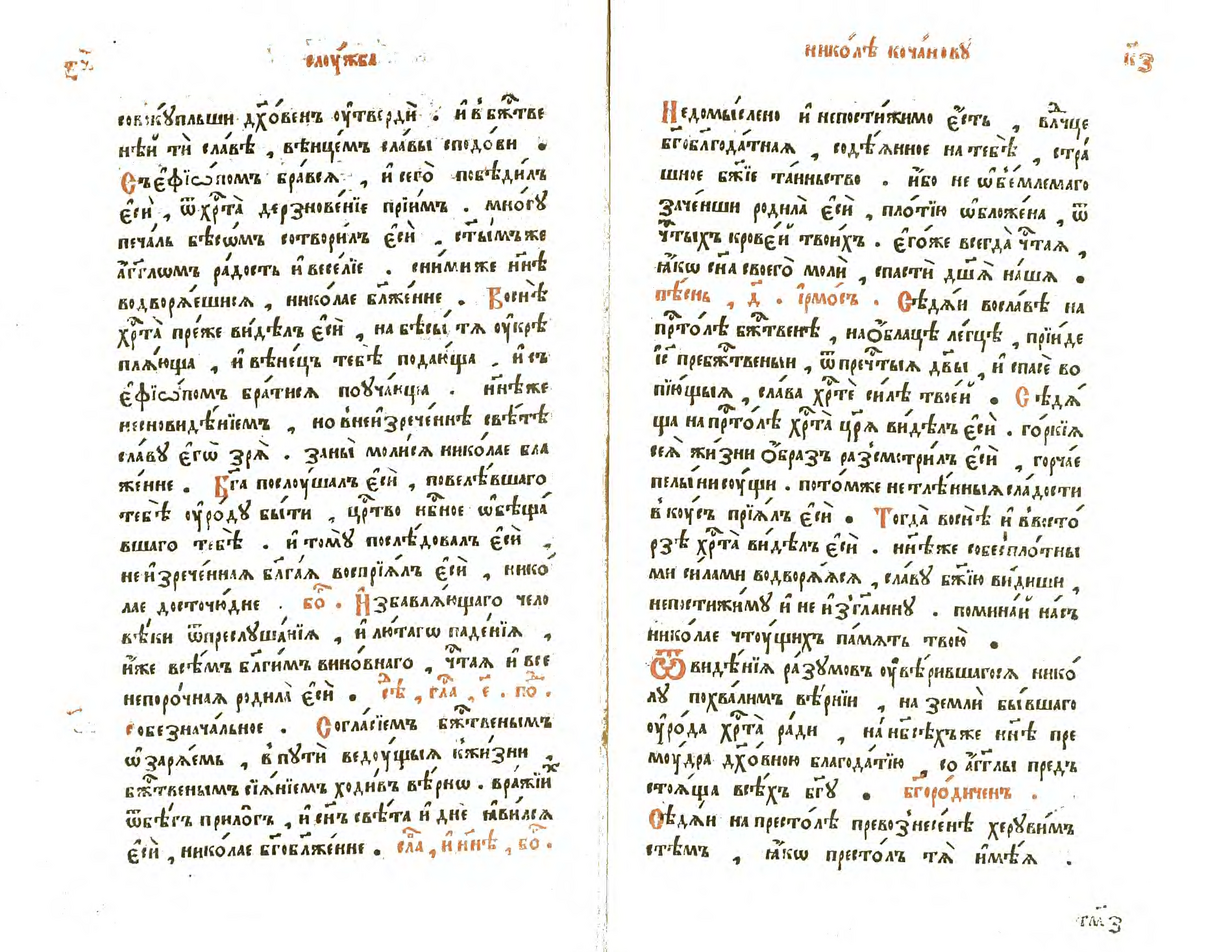 слꙋ́жба
совокꙋ́пльши дх҃о́венъ ᲂу҆твердѝ . и҆ в бж҃тве
нѣ́й тѝ сла́вѣ , вѣнце́мъ сла́вы сподо́ви .
Съ є҆фїѡ́помъ бра́вся , и҆ сего̀ побѣди́лъ
є҆сѝ , ѿ хрⷭ҇та̀ дерзнове́нїе прїи́мъ . мно́гꙋ
печа́ль бѣсѡ́мъ сотвори́лъ є҆сѝ , ст҃ы́мъже
а҆́гг҃лѡмъ ра́дость и҆ весе́лїе . сни́миже нн҃ѣ
водворѧ́ешисѧ , нико́лае бл҃же́нне . Во снѣ̀
хрⷭ҇та̀ пре́же ви́дѣлъ є҆сѝ , на бѣ́сы тѧ ᲂу҆крѣ
плѧ́юща , и҆ вѣне́цъ тебѣ̀ подаю́ща . и҆ съ
є҆фїѡ́помъ бра́тисѧ поꙋча́юща . нн҃ѣже
не сновидѣ́нїемъ , но в неизрече́ннѣ свѣ́тѣ
сла́вꙋ є҆гѡ̀ зрѧ̀ . за ны̀ моли́сѧ нико́лае бла
же́нне . Бг҃а послꙋ́шалъ є҆сѝ , повелѣ́вшаго
тебѣ̀ ᲂу҆ро́дꙋ бы́ти , црⷭ҇тво нбⷭ҇ное ѡ҆бѣща́
вшаго тебѣ̀ . и҆ томꙋ̀ послѣ́довалъ є҆сѝ ,
неизрече́ннаѧ бл҃га́ѧ воспрїѧ́лъ є҆сѝ , нико́
лае досточю́дне . бо҃ . И҆збавлѧ́ющаго чело
вѣ́ки ѿ преслꙋша́нїѧ , и҆ лю́тагѡ паде́нїѧ ,
и҆́же всѣ́мъ бл҃ги́мъ вино́внаго , чⷭ҇таѧ и҆ все
непоро́чнаѧ родила̀ є҆сѝ . сѣ , гла , є . по .
собезнача́льное . Согла́сїемъ бж҃твенымъ
ѡ҆зарѧ́емь , в пꙋтѝ ведꙋ́щыѧ к жи́зни ,
бж҃твенымъ сїѧ́нїемъ ходи́въ вѣ́рнѡ . вра́жїихъ
ѿбѣ́гъ прило́гъ , и҆ сн҃ъ свѣ́та и҆ днѐ ꙗ҆ви́лсѧ
є҆сѝ , нико́лае бг҃обл҃же́нне . сла , и҆ нн҃ѣ , бо҃ .
нико́лѣ коча́новꙋ
к҃з
Недомы́слено и҆ непости́жимо є҆́сть , влⷣчце
бг҃облг҃ода́тнаѧ , содѣ́ѧнное на тебѣ̀ , стра́
шное бж҃їе та́иньство . и҆́бо не ѡ҆б̾е́млемаго
заче́нши родила̀ є҆сѝ , пло́тїю ѡ҆бложе́на , ѿ
чⷭ҇тыхъ крове́й твои́хъ . є҆го́же всегда̀ чⷭ҇таѧ ,
ꙗ҆́кѡ сн҃а своего̀ молѝ , спастѝ дш҃ѧ̀ на́шѧ .
пѣ́снь , д҃ . і҆рмо́съ . Сѣдѧ́и во сла́вѣ на
прⷭ҇то́лѣ бж҃твенѣ , на ѻ҆́блацѣ ле́гцѣ , прїи́де
і҆с҃ пребж҃твеныи , ѿ пречⷭ҇тыѧ дв҃ы , и҆ спасѐ во
пїю́щыѧ , сла́ва хрⷭ҇тѐ си́лѣ твое́й . Сѣдѧ́
ща на прⷭ҇то́лѣ хрⷭ҇та̀ цр҃ѧ̀ ви́дѣлъ є҆сѝ . го́ркїѧ
сеѧ̀ жи́зни ѻ҆́бразъ разсмотри́лъ є҆сѝ , горча́е
пелы́ни сꙋ́щи . пото́мже нетлѣ́нныѧ сла́дости
в кꙋ́съ прїѧ́лъ є҆сѝ . Тогда̀ во снѣ̀ и҆ в восто́
рзѣ хрⷭ҇та̀ ви́дѣлъ є҆сѝ . нн҃ѣже со бесплѡ́тны
ми си́лами водворѧ́ѧсѧ , сла́вꙋ бж҃їю ви́диши ,
непости́жимꙋ и҆ не и҆згла́ннꙋ . помина́й на́съ
нико́лае чтꙋ́щихъ па́мѧть твою̀ .
Ѿ видѣ́нїѧ ра́зꙋмовъ ᲂу҆вѣ́рившагосѧ нико́
лꙋ похва́лимъ вѣ́рнїи , на землѝ бы́вшаго
ᲂу҆ро́да хрⷭ҇та̀ ра́ди , на нб҃сѣ́хъже нн҃ѣ пре
мꙋ́дра дх҃о́вною благода́тїю , со а҆́гг҃лы пре́дъ
стоѧ́ща всѣ́хъ бг҃ꙋ . бг҃оро́диченъ .
Сѣдѧ́и на престо́лѣ превознесе́нѣ херꙋви́мъ
стѣмъ , ꙗ҆́кѡ престо́лъ тѧ̀ и҆мѣ́ѧ .